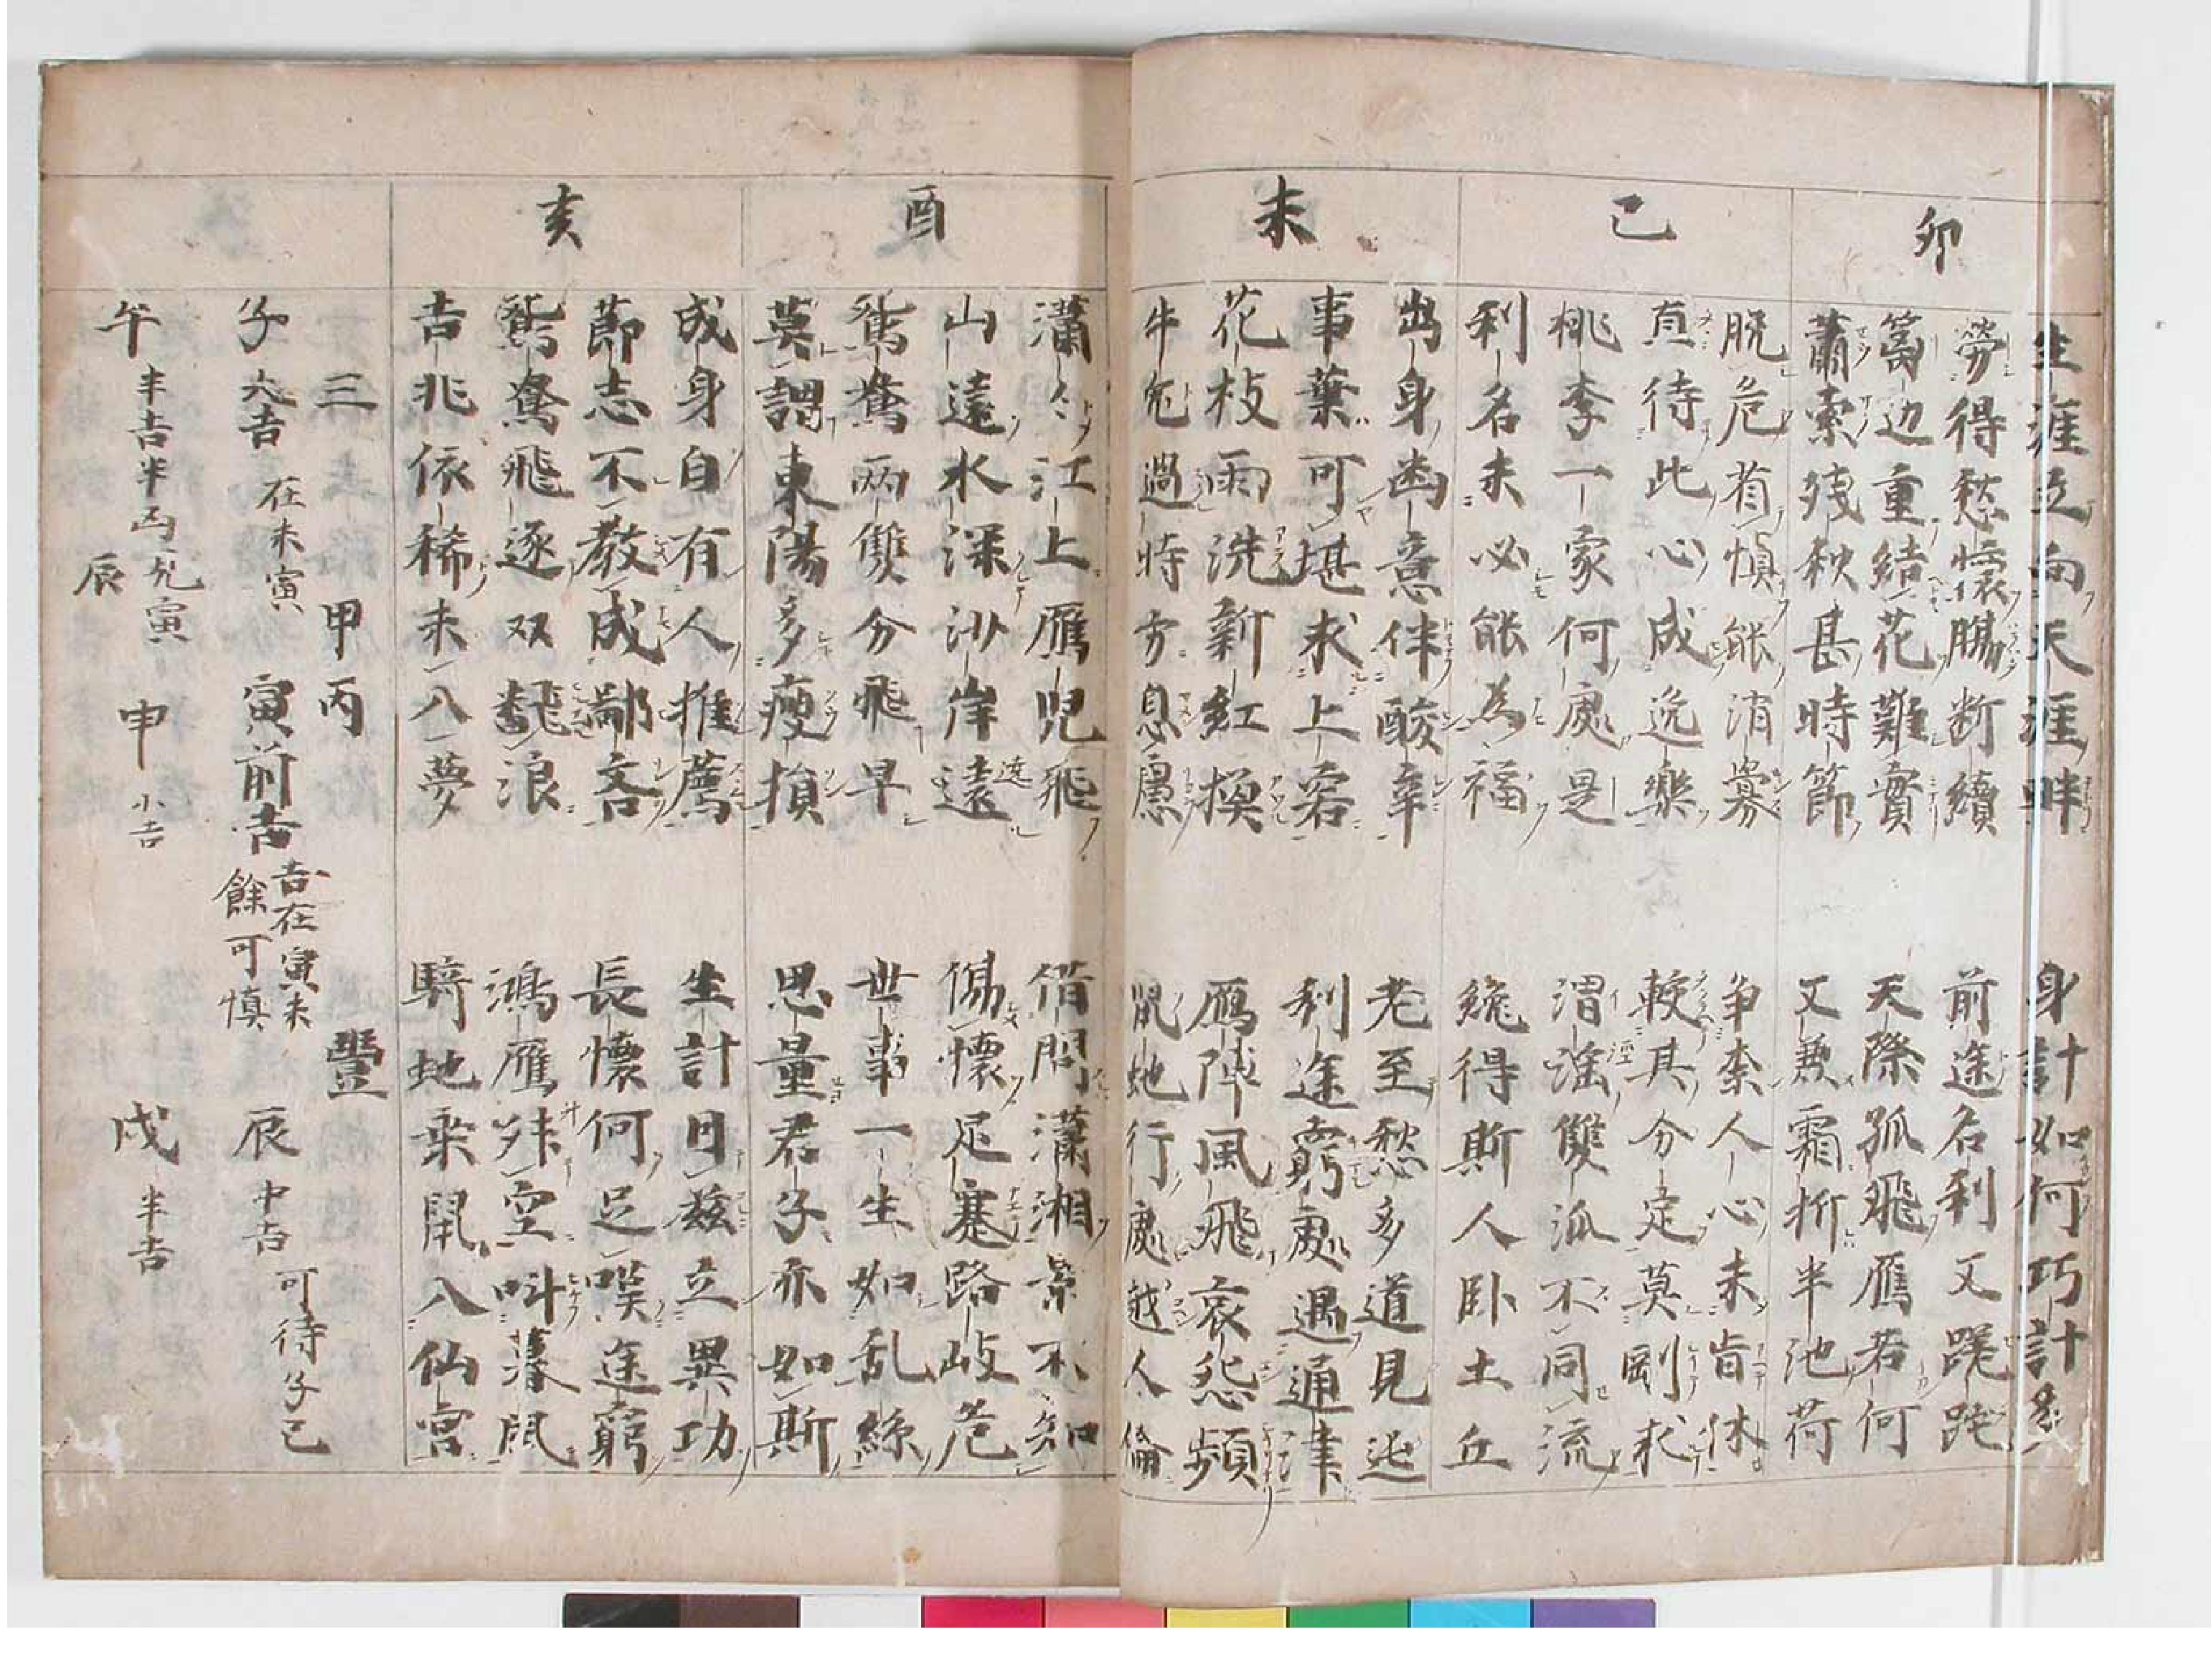 卯
生涯立向天涯畔 身計如何巧計多
労得愁懐腸断續 前途名利又蹉跎
籬边重結花難實 天際孤飛雁若何
蕭索残秋甚時節 又兼霜折半池荷
巳
脱危有慎能消 争奈人心未肯休
直待此心成逸樂 較其分定莫剛求
桃李一家何處是 渭涇雙派不同流
利名未必能為福 纔得斯人臥土丘
未
出身幽意伴酸辛 老至愁多道見迍
事葉可堪求上 利途窮處遇通津
花枝雨洗新紅換 鴈陣風飛哀怨頻
牛兔過時方息慮 鼠蛇行處越人倫
酉
瀟々江上雁児飛 借問瀟湘景不知
山遠水深沙岸遠 傷懐足蹇路岐危
鴛鴦兩雙分飛早 世事一生如乱絲
莫謂東陽多瘦損 思量君子亦如斯
亥
成身自有人推薦 生計日茲立異功
節志不教成鄙吝 長懐何足嘆途窮
鴛鴦飛逐双翻浪 鴻雁姊空叫暮風
吉兆依稀未入夢 騎蛇乗鼠入仙宮
三 甲 丙 豐
子 大吉 在未寅 寅前吉 吉在寅未 餘可慎 辰 中吉 可待子巳
午 半吉半凶 寅 辰 申 小吉 戌 半吉